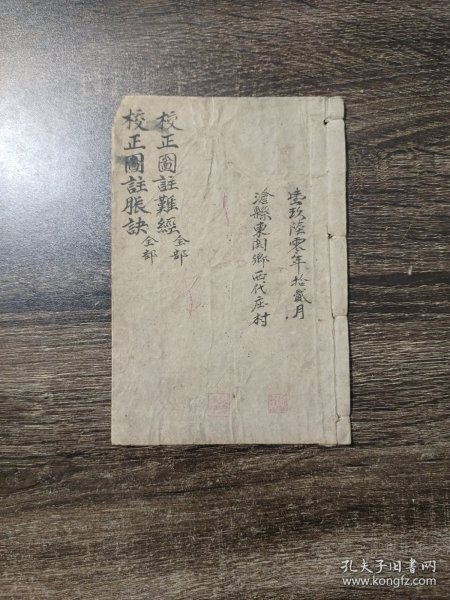 壹玖陸零年拾貳月
滄縣東関鄉西代庄村
校正圖註難經全部
校正圖註脹訣全部
孔夫子旧书网
www.kongfz.com